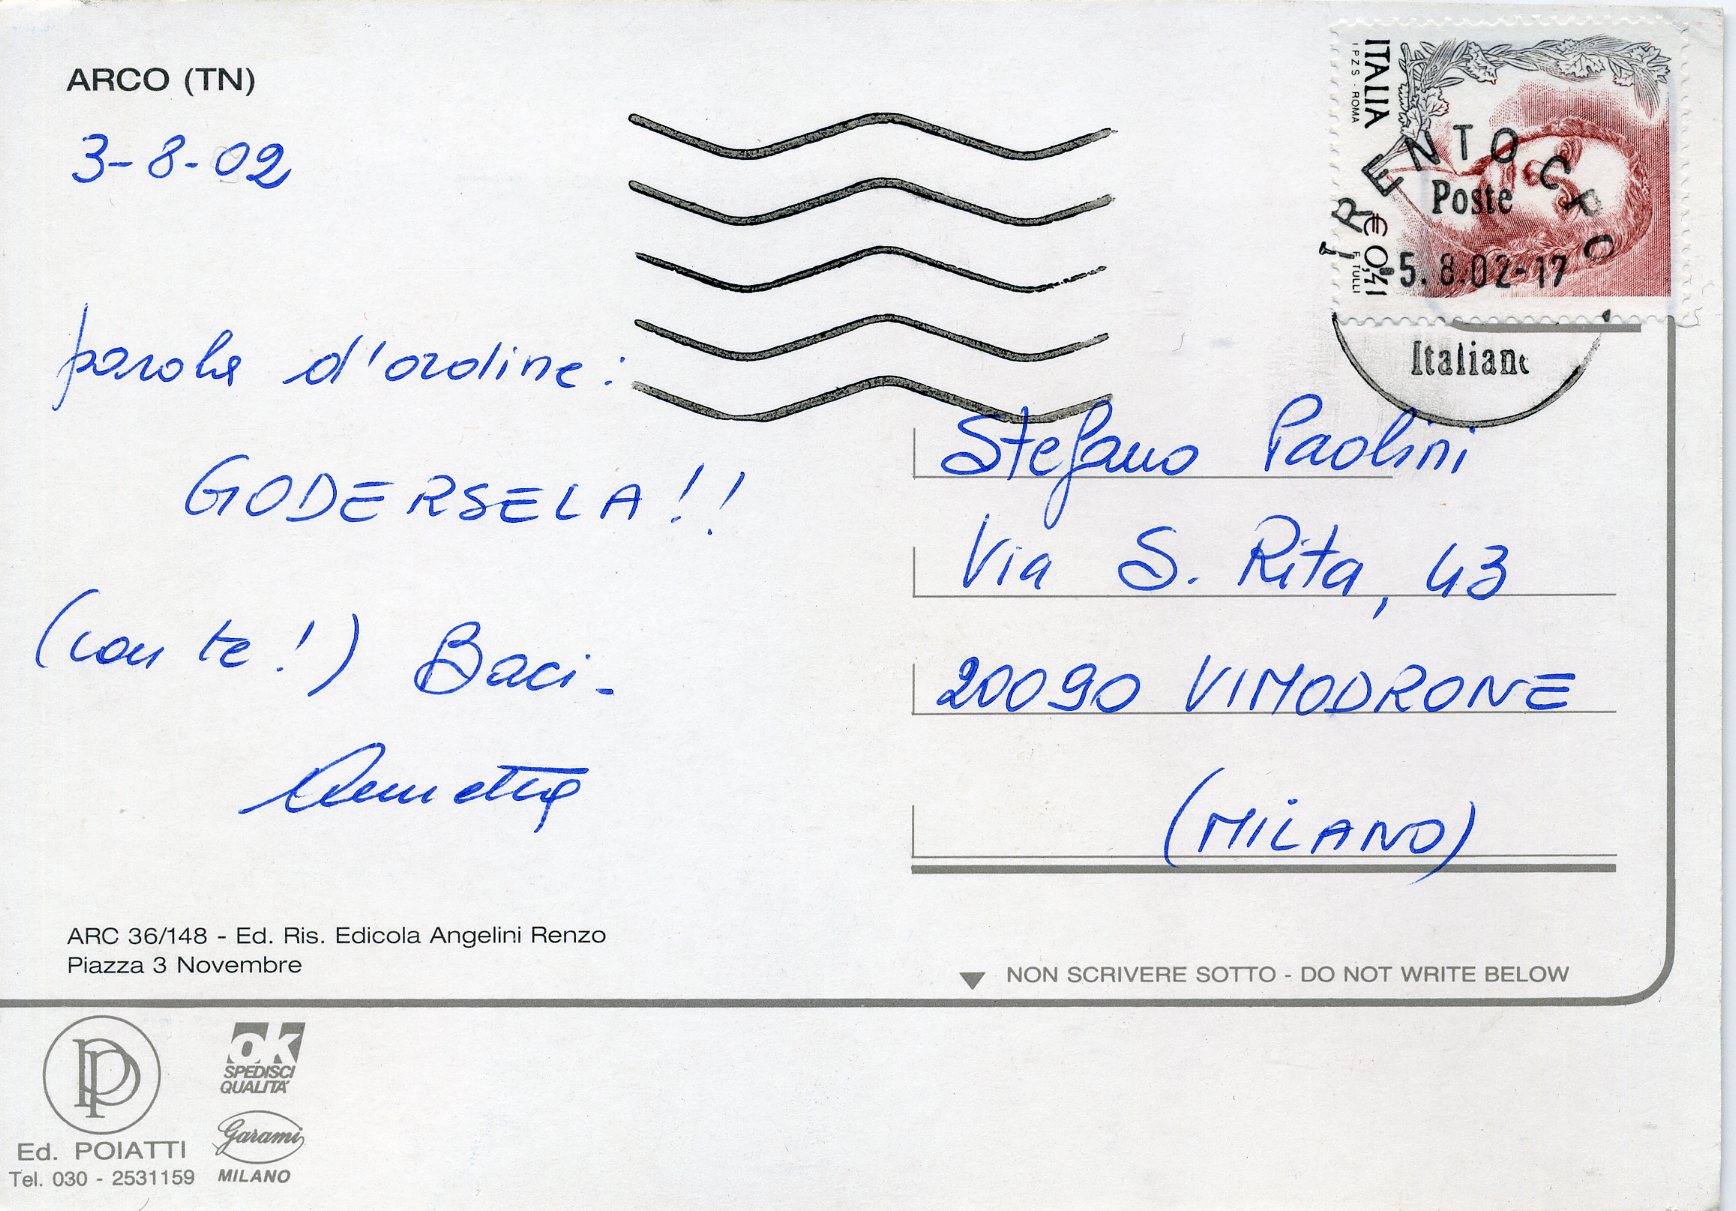 ARCO (TN)
3-8-02
parola d'ordine:
GODERSELA!!
(con te!) Baci-
ITALIA
I.P.Z.S. - ROMA
€ 0,41
F. TULLI
TRENTO CPO
Poste
5.8.02-17
Italiane
Stefano Paolini
Via S. Rita, 43
20090 VIMODRONE
(MILANO)
ARC 36/148 - Ed. Ris. Edicola Angelini Renzo
Piazza 3 Novembre
NON SCRIVERE SOTTO - DO NOT WRITE BELOW
PP
Ed. POIATTI
Tel. 030 - 2531159
ok
SPEDISCI
QUALITA'
Garami
MILANO